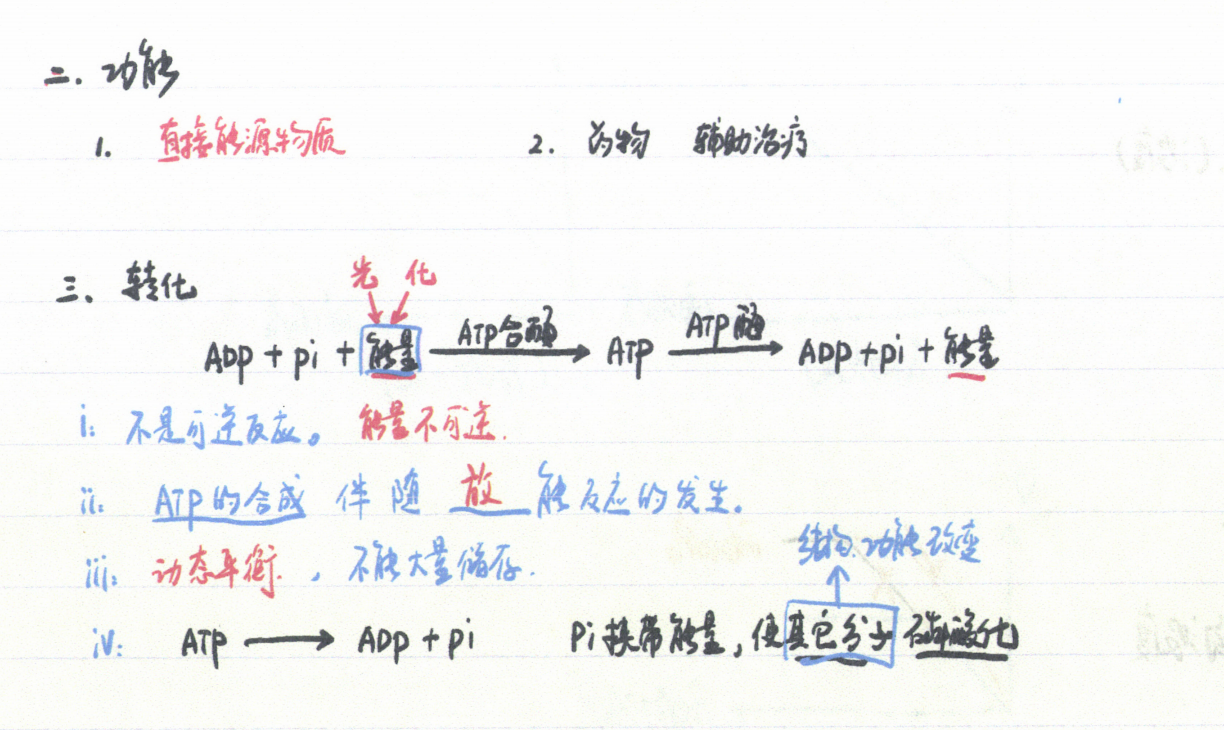 二. 功能
1. 直接能源物质 2. 药物 辅助治疗
三、转化
光 化
ADP + pi + 能量 ATP合酶 ATP ATP酶 ADP + pi + 能量
i: 不是可逆反应。 能量不可逆.
ii: ATP的合成 伴随 放 能反应的发生。
iii: 动态平衡. , 不能大量储存.
结构.功能改变
iv: ATP → ADP + pi Pi挟带能量,使其它分子磷酸化